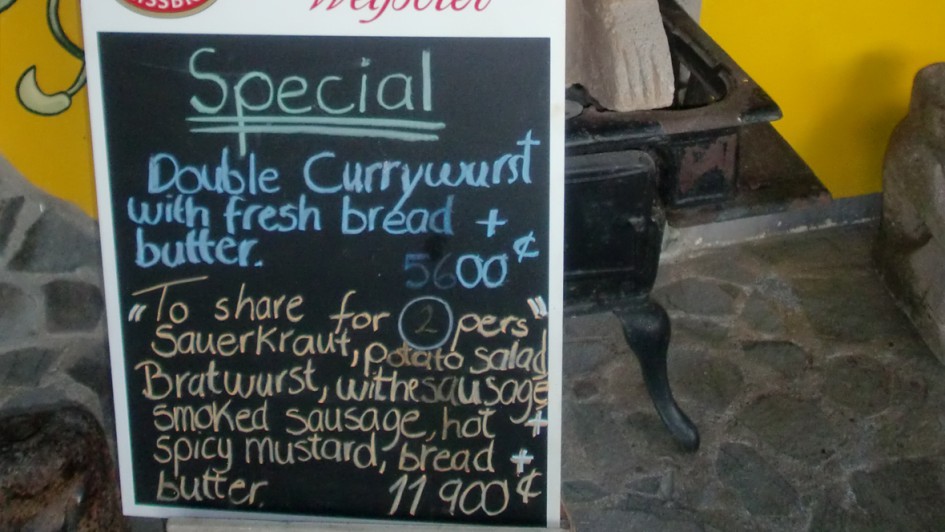 Special
Double Currywurst
with fresh bread +
butter.
5600¢
"To share for 2 pers"
Sauerkraut, potato salad
Bratwurst, withe sausage
smoked sausage, hot +
spicy mustard, bread +
butter.
11 900¢